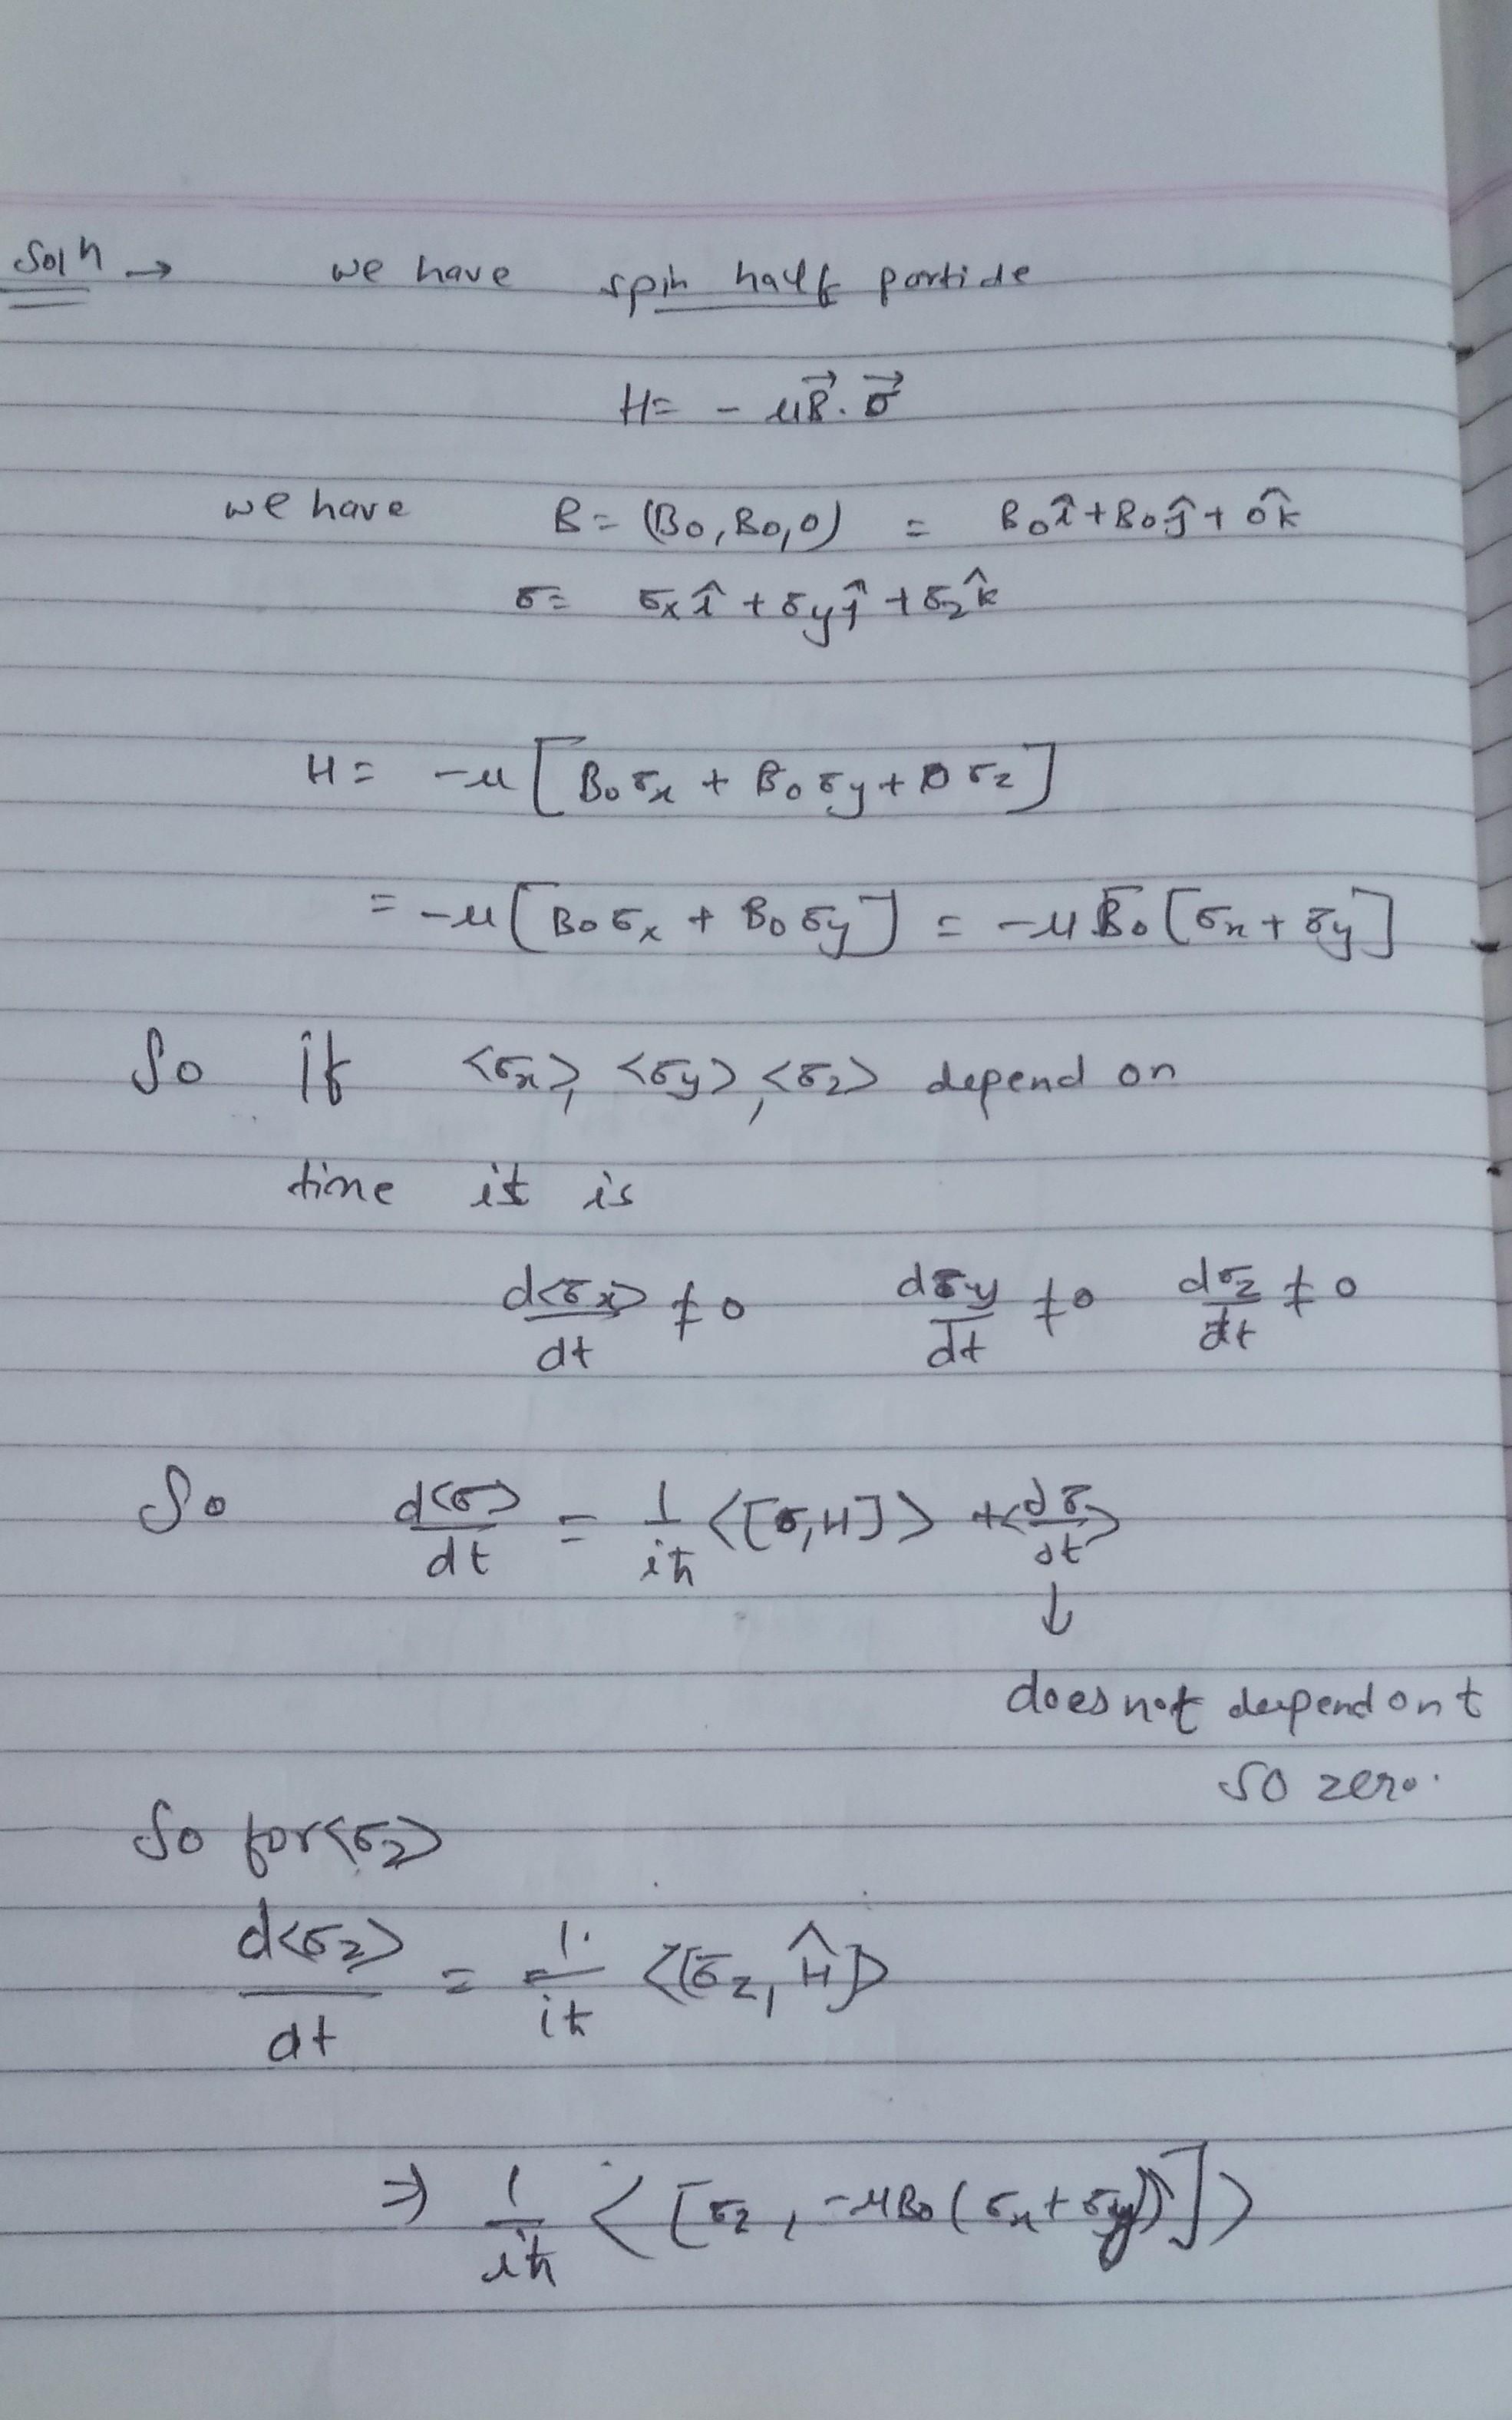 Soln → we have spin half particle
H = - μB⃗. σ⃗
we have B = (B0, B0, 0) = B0 î + B0 ĵ + 0 k̂
σ = σx î + σy ĵ + σz k̂
H = -μ [B0 σx + B0 σy + 0 σz]
= -μ [B0 σx + B0 σy] = -μ B0 [σx + σy]
So if <σx>, <σy>, <σz> depend on
time it is
d<σx>/dt ≠ 0 dσy/dt ≠ 0 dσz/dt ≠ 0
So d<σ>/dt = 1/iħ <[σ, H]> + <∂σ/∂t>
↓
does not depend on t
so zero.
So for <σz>
d<σz>/dt = 1/iħ <[σz, Ĥ]>
⇒ 1/iħ < [σz, -μB0 (σx + σy)] >